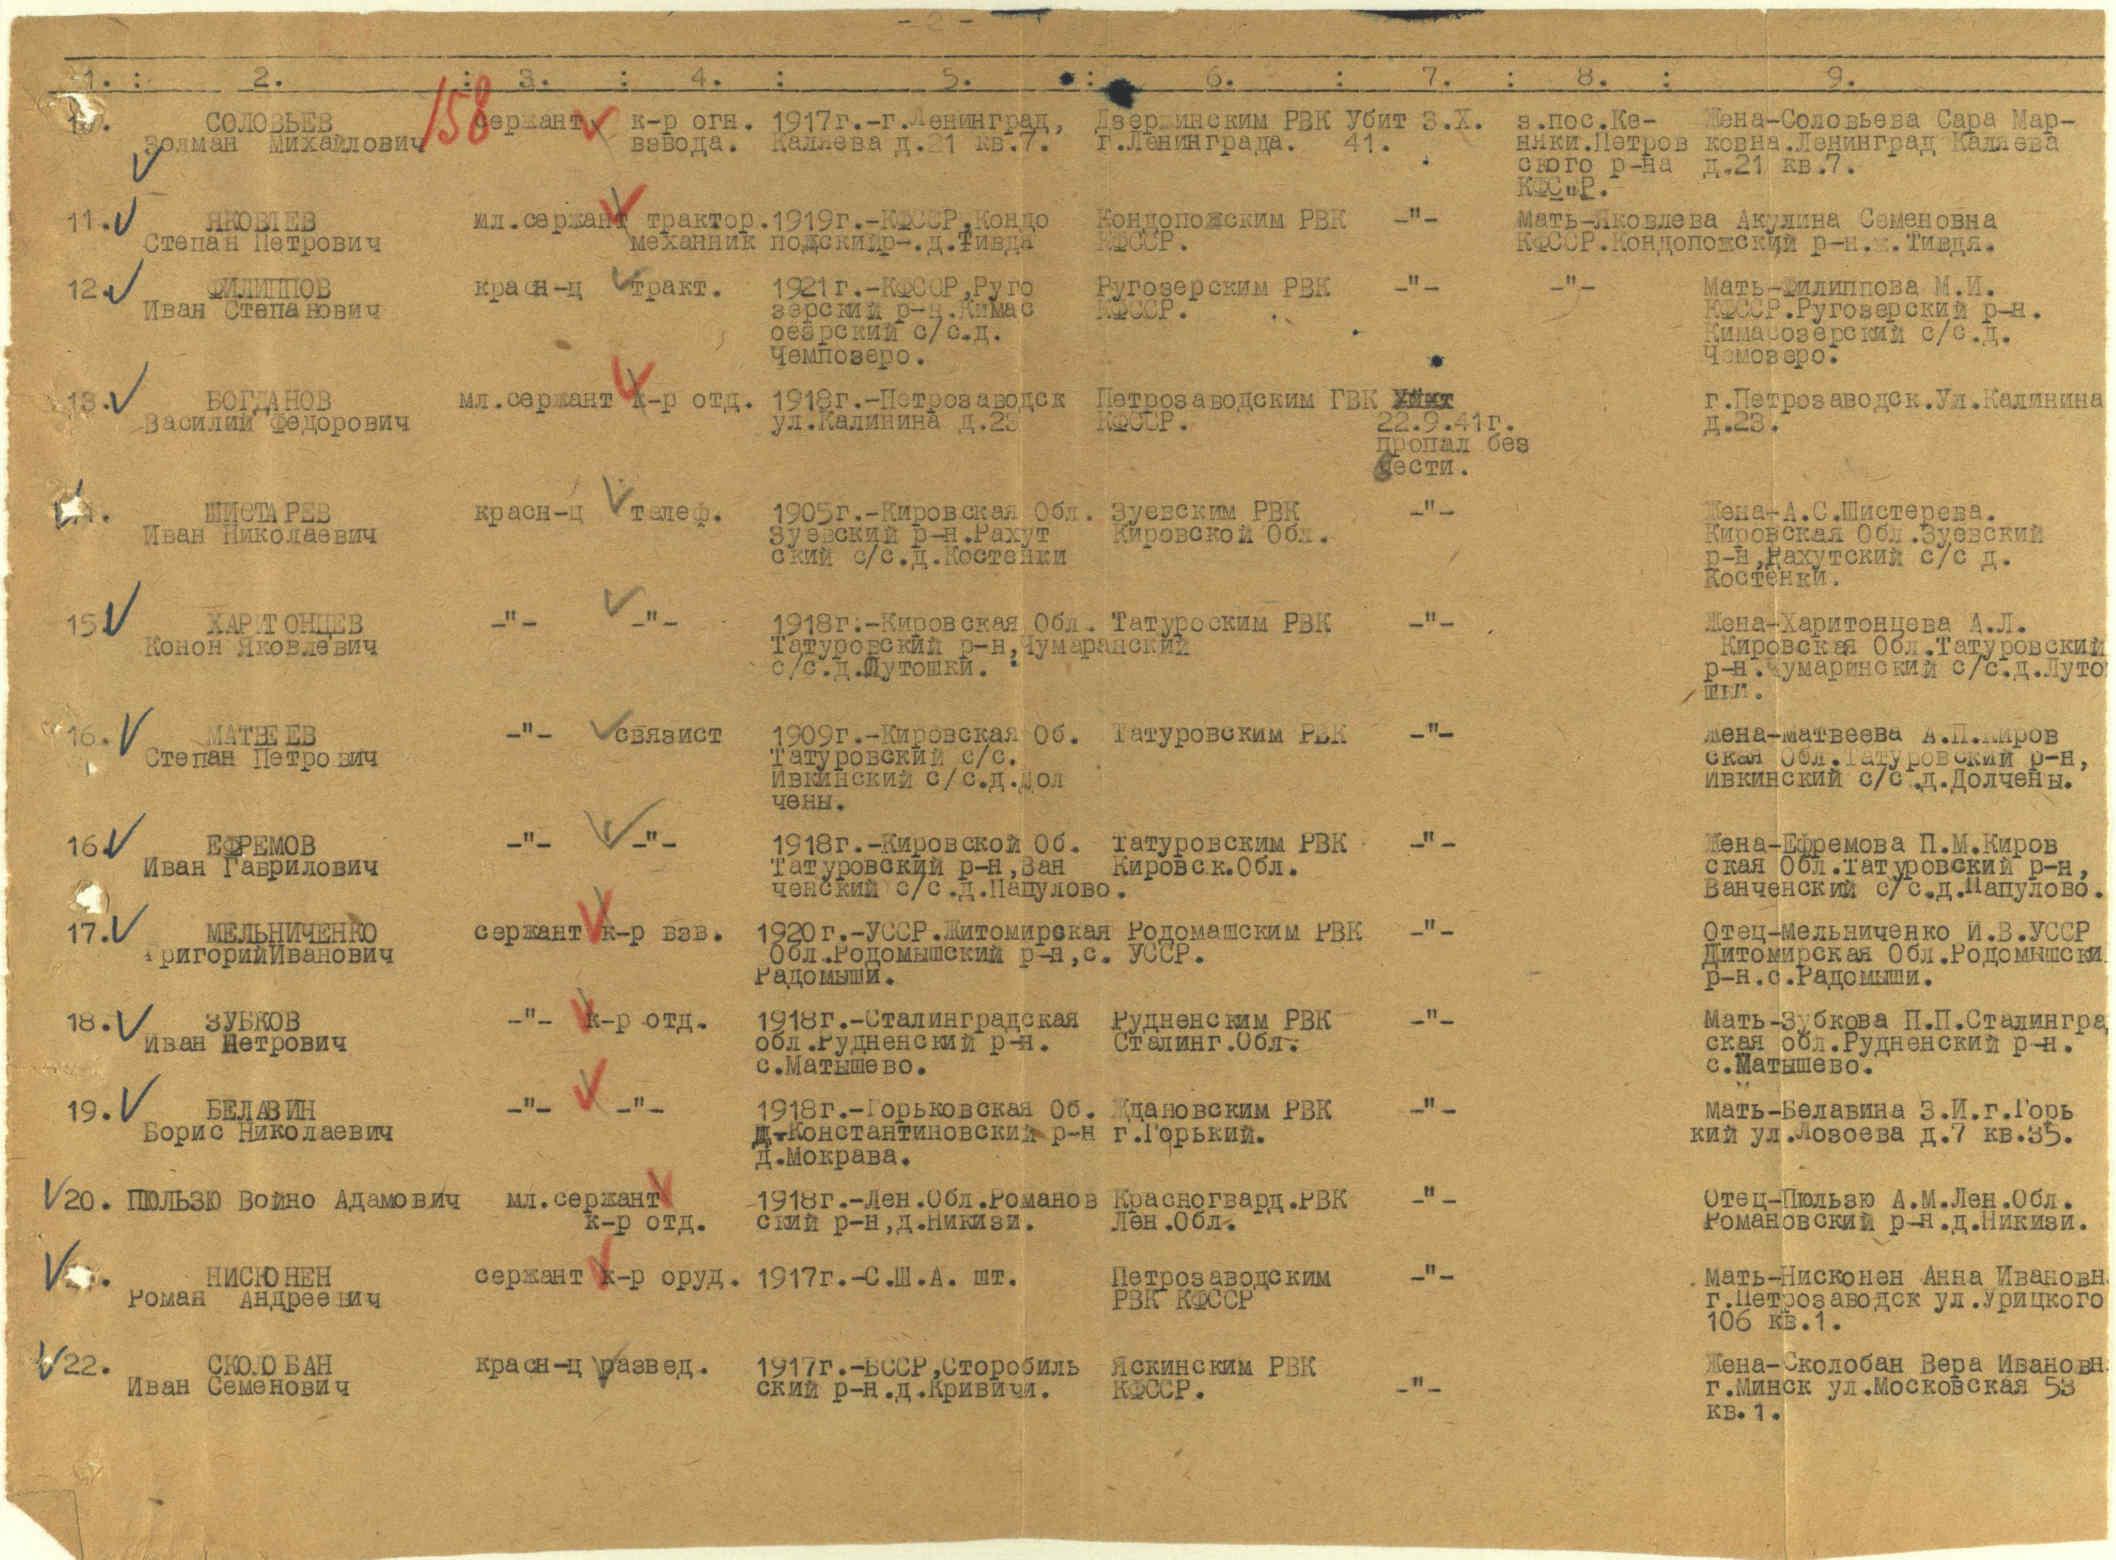 - 2 -
1. : 2. : 3. : 4. : 5. : 6. : 7. : 8. : 9.
158
10. СОЛОВЬЕВ сержант к-р огн. 1917г.-г.Ленинград, Дзержинским РВК Убит 3.Х. з.пос.Ке- Жена-Соловьева Сара Мар-
Залман Михайлович взвода. Каляева д.21 кв.7. г.Ленинграда. 41. няки.Петров ковна.Ленинград Каляева
ского р-на д.21 кв.7.
КФСсР.
11. ЯКОВЛЕВ мл.сержант трактор. 1919г.-КФССР,Кондо Кондопожским РВК -"- Мать-Яковлева Акулина Семеновна
Степан Петрович механник подскийр-.д.Тивдя КФССР. КФССР.Кондопожский р-н.ж.Тивдя.
12. ФИЛИППОВ красн-ц тракт. 1921г.-КФССР,Руго Ругозерским РВК -"- -"- Мать-Филиппова М.И.
Иван Степанович зерский р-н.Кимас КФССР. КФССР.Ругозерский р-н.
оезрский с/с.д. Кимасозерский с/с.д.
Чемпозеро. Чемозеро.
13. БОГДАНОВ мл.сержант к-р отд. 1918г.-Петрозаводск Петрозаводским ГВК г.Петрозаводск.Ул.Калинина
Василий Федорович ул.Калинина д.23 КФССР. 22.9.41г. д.23.
пропал без
вести.
14. ШИСТАРЕВ красн-ц телеф. 1905г.-Кировская Обл. Зуевским РВК -"- Жена-А.С.Шистерева.
Иван Николаевич Зуевский р-н.Рахут Кировской Обл. Кировская Обл.Зуевский
ский с/с.д.Костенки р-н,Рахутский с/с д.
Костенки.
15. ХАРИТОНЦЕВ -"- -"- 1918г.-Кировская Обл. Татуроским РВК -"- Жена-Харитонцева А.Л.
Конон Яковлевич Татуровский р-н,Чумаранский Кировская Обл.Татуровский
с/с.д.Лутошки. р-н.Чумаринский с/с.д.Луто
шки.
16. МАТВЕЕВ -"- связист 1909г.-Кировская Об. Татуровским РВК -"- Жена-Матвеева А.П.Киров
Степан Петрович Татуровский с/с. ская Обл.Татуровский р-н,
Ивкинский с/с.д.Дол Ивкинский с/с.д.Долчены.
чены.
16. ЕФРЕМОВ -"- -"- 1918г.-Кировской Об. Татуровским РВК -"- Жена-Ефремова П.М.Киров
Иван Гаврилович Татуровский р-н,Ван Кировск.Обл. ская Обл.Татуровский р-н,
ченский с/с.д.Папулово. Ванченский с/с.д.Папулово.
17. МЕЛЬНИЧЕНКО сержант к-р взв. 1920г.-УССР.Житомирская Родомашским РВК -"- Отец-Мельниченко И.В.УССР
ГригорийИванович Обл.Родомышский р-н,с. УССР. Житомирская Обл.Родомышски
Радомыши. р-н.с.Радомыши.
18. ЗУБКОВ -"- к-р отд. 1918г.-Сталинградская Рудненским РВК -"- Мать-Зубкова П.П.Сталингра
Иван Петрович обл.Рудненский р-н. Сталинг.Обл. ская обл.Рудненский р-н.
с.Матышево. с.Матышево.
19. БЕЛАВИН -"- -"- 1918г.-Горьковская Об. Ждановским РВК -"- Мать-Белавина З.И.г.Горь
Борис Николаевич Д-Константиновский р-н г.Горький. кий ул.Лозоева д.7 кв.35.
д.Мокрава.
20. ПЮЛЬЗЮ Войно Адамович мл.сержант 1918г.-Лен.Обл.Романов Красногвард.РВК -"- Отец-Пюльзю А.М.Лен.Обл.
к-р отд. ский р-н,д.Никизи. Лен.Обл. Романовский р-н.д.Никизи.
НИСЮНЕН сержант к-р оруд. 1917г.-С.Ш.А. шт. Петрозаводским -"- Мать-Нисконен Анна Ивановн
Роман Андреевич РВК КФССР г.Петрозаводск ул.Урицкого
106 кв.1.
22. СКОЛОБАН красн-ц развед. 1917г.-БССР,Сторобиль Яскинским РВК Жена-Сколобан Вера Ивановн
Иван Семенович ский р-н.д.Кривичи. КФССР. -"- г.Минск ул.Московская 53
кв.1.